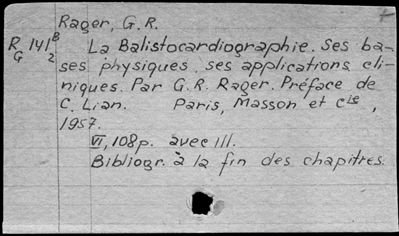 Rager, G.R.
R 141 B
G 2
La Balistocardiographie. Ses ba-
ses physiques, ses applications cli-
niques. Par G.R. Rager. Préface de
C. Lian. Paris, Masson et Cie,
1957.
VI, 108p. avec ill.
Bibliogr. à la fin des chapitres.